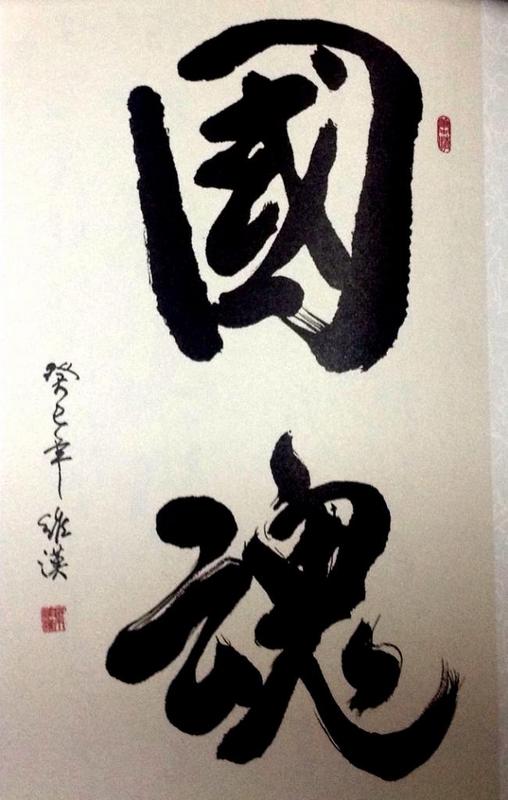 國魂
癸巳年 維漢